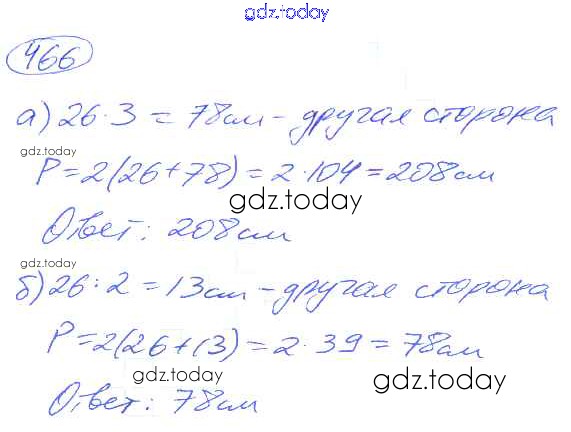 gdz.today
466
а) 26·3 = 78см - другая сторона
gdz.today
P = 2(26+78) = 2·104 = 208см
gdz.today
Ответ: 208см
gdz.today
б) 26:2 = 13см - другая сторона
P = 2(26+13) = 2·39 = 78см
gdz.today
gdz.today
Ответ: 78см